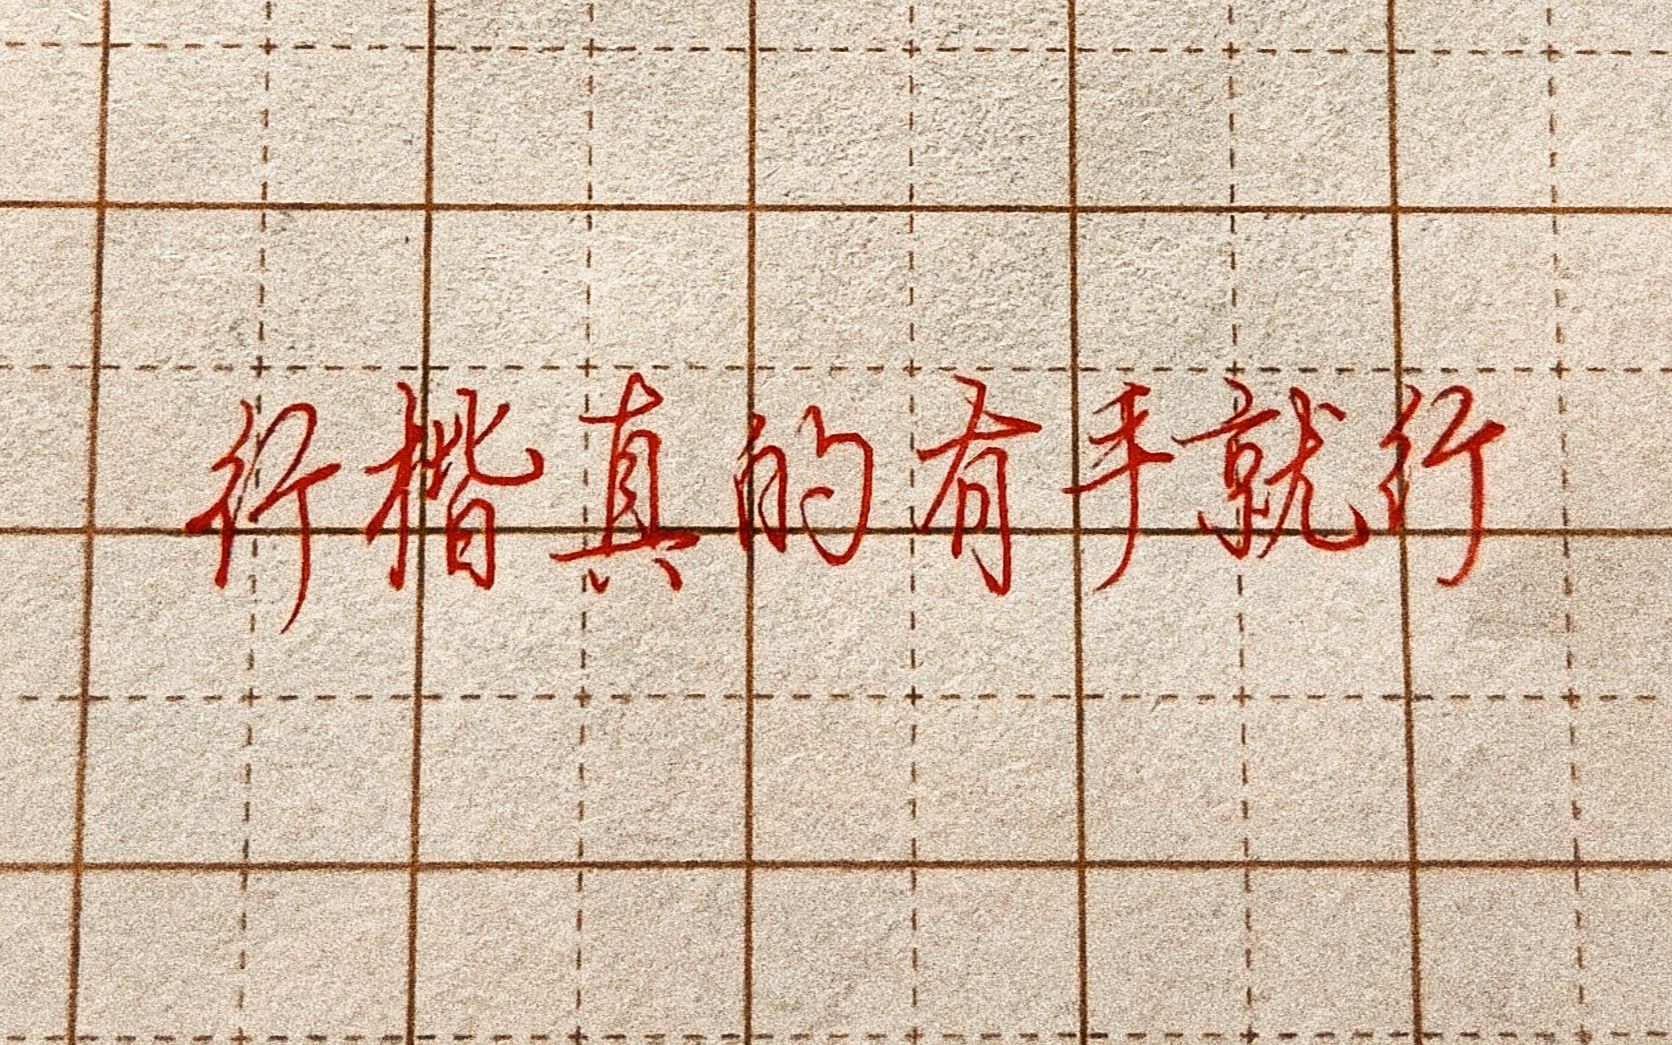 行楷真的有手就行